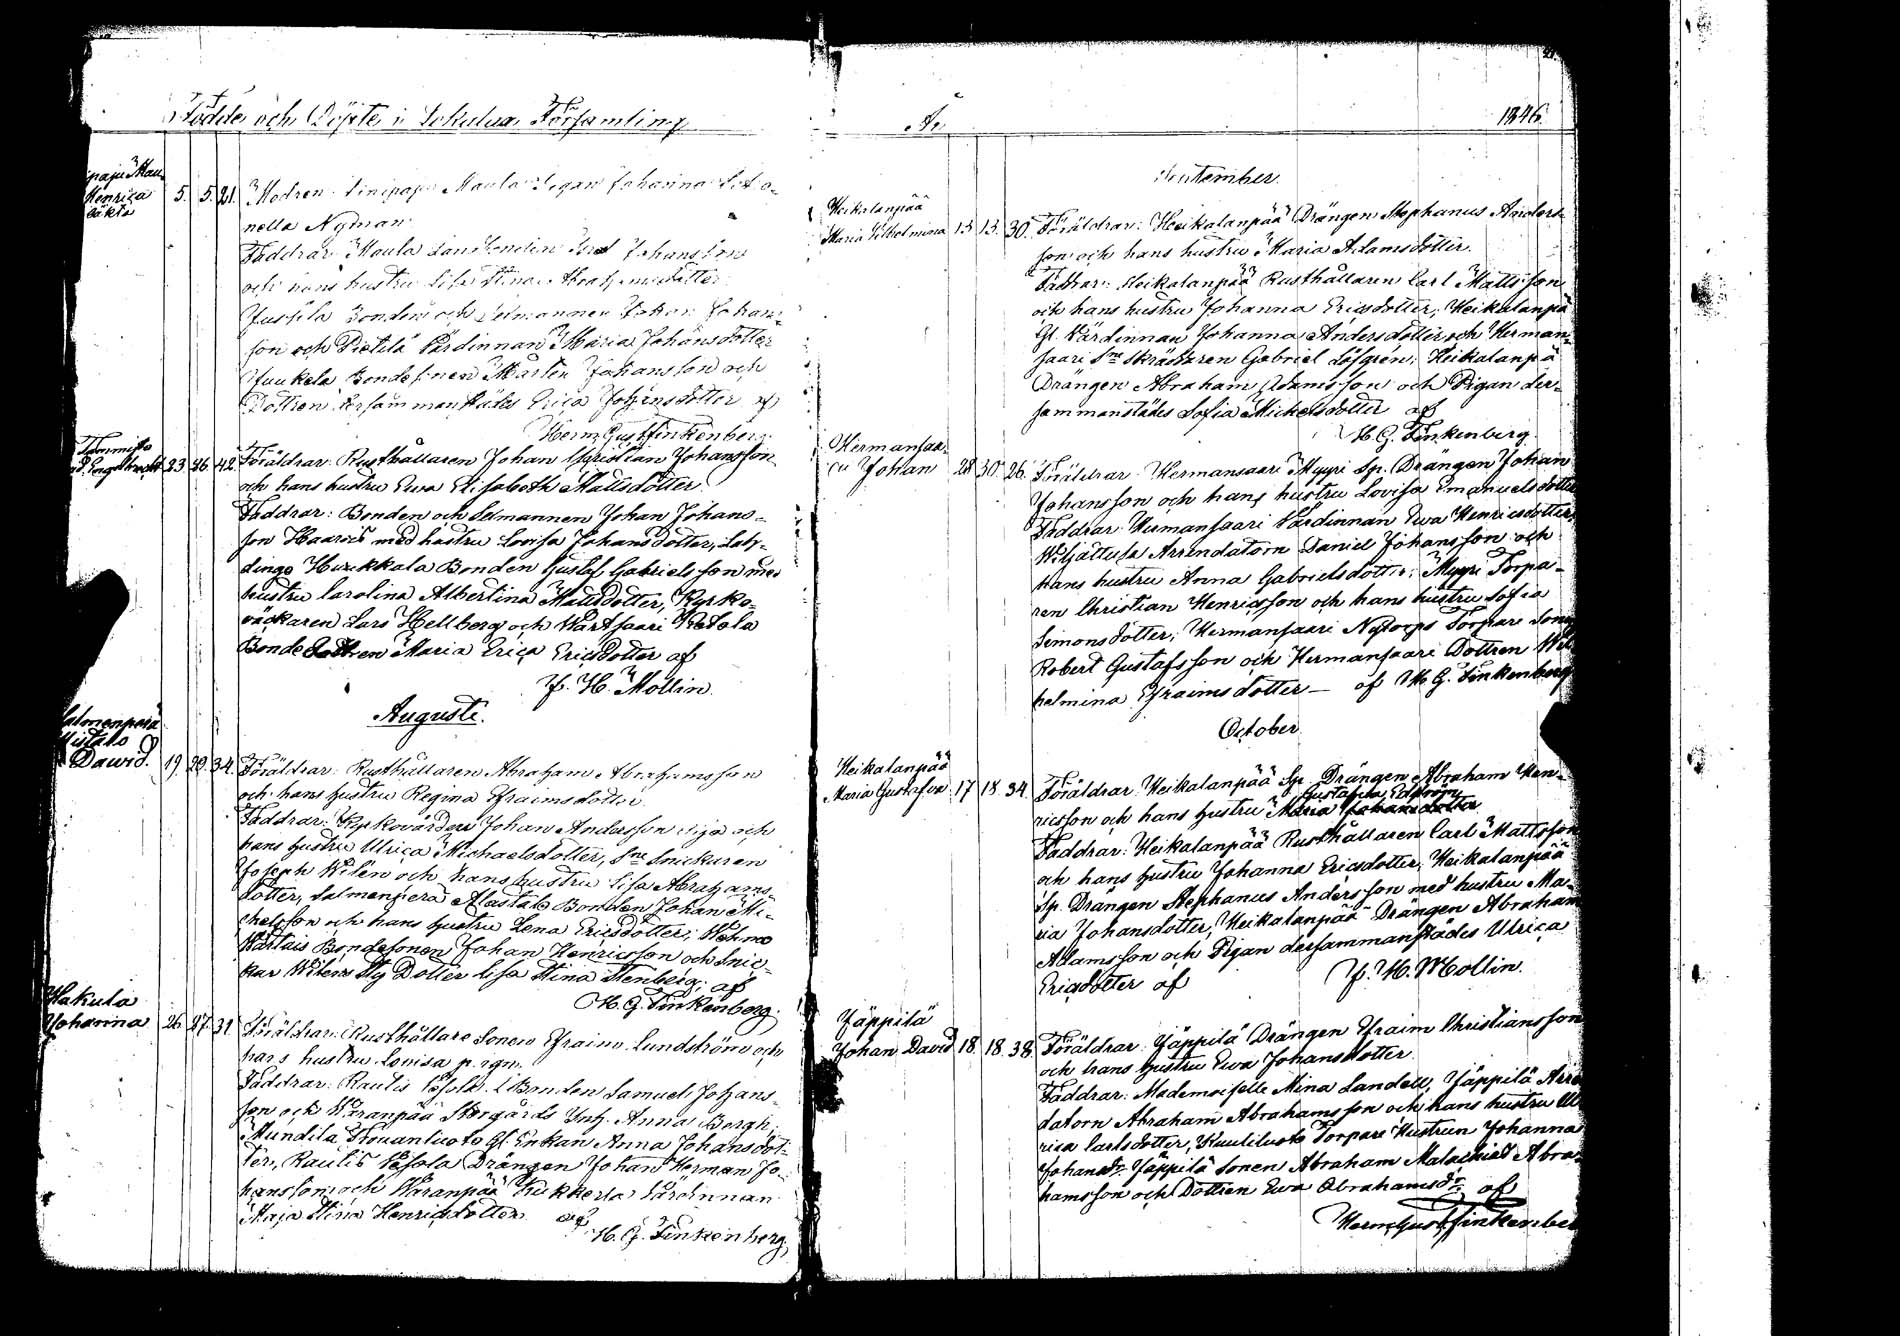 Födde och Döpte i Lokalax Församling
År 1846.
21.
paju Mau-
Henrica
oäkta
5. 5. 21. Modren: Sinipaju Maula Pigan Johanna
nella Nyman
Faddrar: Maula Bonden Johansson
och hans hustru Lisa Stina Abrahamsdotter
Jussila Bonden och Johan Johans-
son och Pietilä Värdinnan Maria Johansdotter
Juukola Bondesonen Mårten Johansson och
Dottren dersammanstädes Erica Johansdotter af
Herm Gust Finkenberg.
Tammisto
Engelbrecht 23 26 42 Föräldrar: Rusthållaren Johan Christian Johansson
och hans hustru Ewa Elisabeth Mattsdotter.
Faddrar: Bonden och Johan Johans-
son Haarois med hustru Lovisa Johansdotter, Laty-
dingo Hurkkala Bonden Gustaf Gabrielsson med
hustru Carolina Albertina Mattsdotter, Kyrko-
väckaren Lars Hellberg och Wartsaari Ketola
Bonde Dottren Maria Erica Ericsdotter af
J. H. Mollin.
Augusti.
Salmenperä
Alistalo
Dawid. 19. 20. 34. Föräldrar: Rusthållaren Abraham Abrahamsson
och hans hustru Regina Efraimsdotter.
Faddrar: Kyrkovärden Johan Andersson och
hans hustru Ulrica Michaelsdotter, Sne Snickaren
Joseph Wilen och hans hustru Lisa Abrahams
dotter, Salmenperä Alastalo Bonden Johan Mi-
chelsson och hans hustru Lena Ericsdotter; Wehmo
Wartais Bondesonen Johan Henricsson och Snic-
kar Wilens Sty Dotter Lisa Stina Stenberg; af
H. G. Finkenberg.
Hakula
Johanna 26. 27. 31. Föräldrar: Rusthållare Sonen Efraim Lundström och
hans hustru Lovisa
Faddrar: Raulis Päsola Bonden Samuel Johans-
son och Waranpää Storgårds Anna Bergh,
Mundila Gl. Enkan Anna Johansdot-
ter, Raulis Päsola Drängen Johan Herman Jo-
hansson och Waranpää Kukkerla Värdinnan
Maja Stina Henricsdotter af
H. G. Finkenberg.
September.
Heikalanpää
Maria Vilhelmina 13 13. 30. Föräldrar: Heikalanpää Drängen Stephanus Anders-
son och hans hustru Maria Adamsdotter.
Faddrar: Heikalanpää Rusthållaren Carl Mattsson
och hans hustru Johanna Ericsdotter, Heikalanpä
Gl. Värdinnan Johanna Andersdotter och Herman-
saari Sne Skräddaren Gabriel Löfgren; Heikalanpä
Drängen Abraham Adamsson och Pigan der-
sammanstädes Sofia Michelsdotter af
H. G. Finkenberg
Hermansaa-
ri Johan 28 30. 26. Föräldrar: Hermansaari Myyri Sp. Drängen Johan
Johansson och hans hustru Lovisa Emanuelsdotter
Faddrar: Hermansaari Värdinnan Ewa Henricsdotter,
Wiljattula Arrendatorn Daniel Johansson och
hans hustru Anna Gabrielsdotter; Myyri Torpa-
ren Christian Henricsson och hans hustru Sofia
Simonsdotter; Hermansaari Nytorps Torpare Sonen
Robert Gustafsson och Hermansaari Dottren Wil
helmina Efraimsdotter — af H. G. Finkenberg
October.
Heikalanpää
Maria Gustafva 17 18. 34. Föräldrar: Heikalanpää Sp. Drängen Abraham Hen-
Gustafva Edström
ricsson och hans hustru Maria Johansdotter
Faddrar: Heikalanpää Rusthållaren Carl Mattsson
och hans hustru Johanna Ericsdotter, Heikalanpää
Sp. Drängen Stephanus Andersson med hustru Ma-
ria Johansdotter, Heikalanpää Drängen Abraham
Adamsson och Pigan dersammanstädes Ulrica
Ericsdotter af J. H. Mollin.
Jäppilä
Johan David 18. 18. 38. Föräldrar: Jäppilä Drängen Efraim Christiansson
och hans hustru Ewa Johansdotter.
Faddrar: Mademoiselle Mina Landell, Jäppilä Arren
datorn Abraham Abrahamsson och hans hustru Ul
rica Carlsdotter, Kuuliluoto Torpare Hustrun Johanna
Johansdr. Jäppilä Sonen Abraham Malachias Abra-
hamsson och Dottren Ewa Abrahamsdr. af
Herm Gust Finkenber